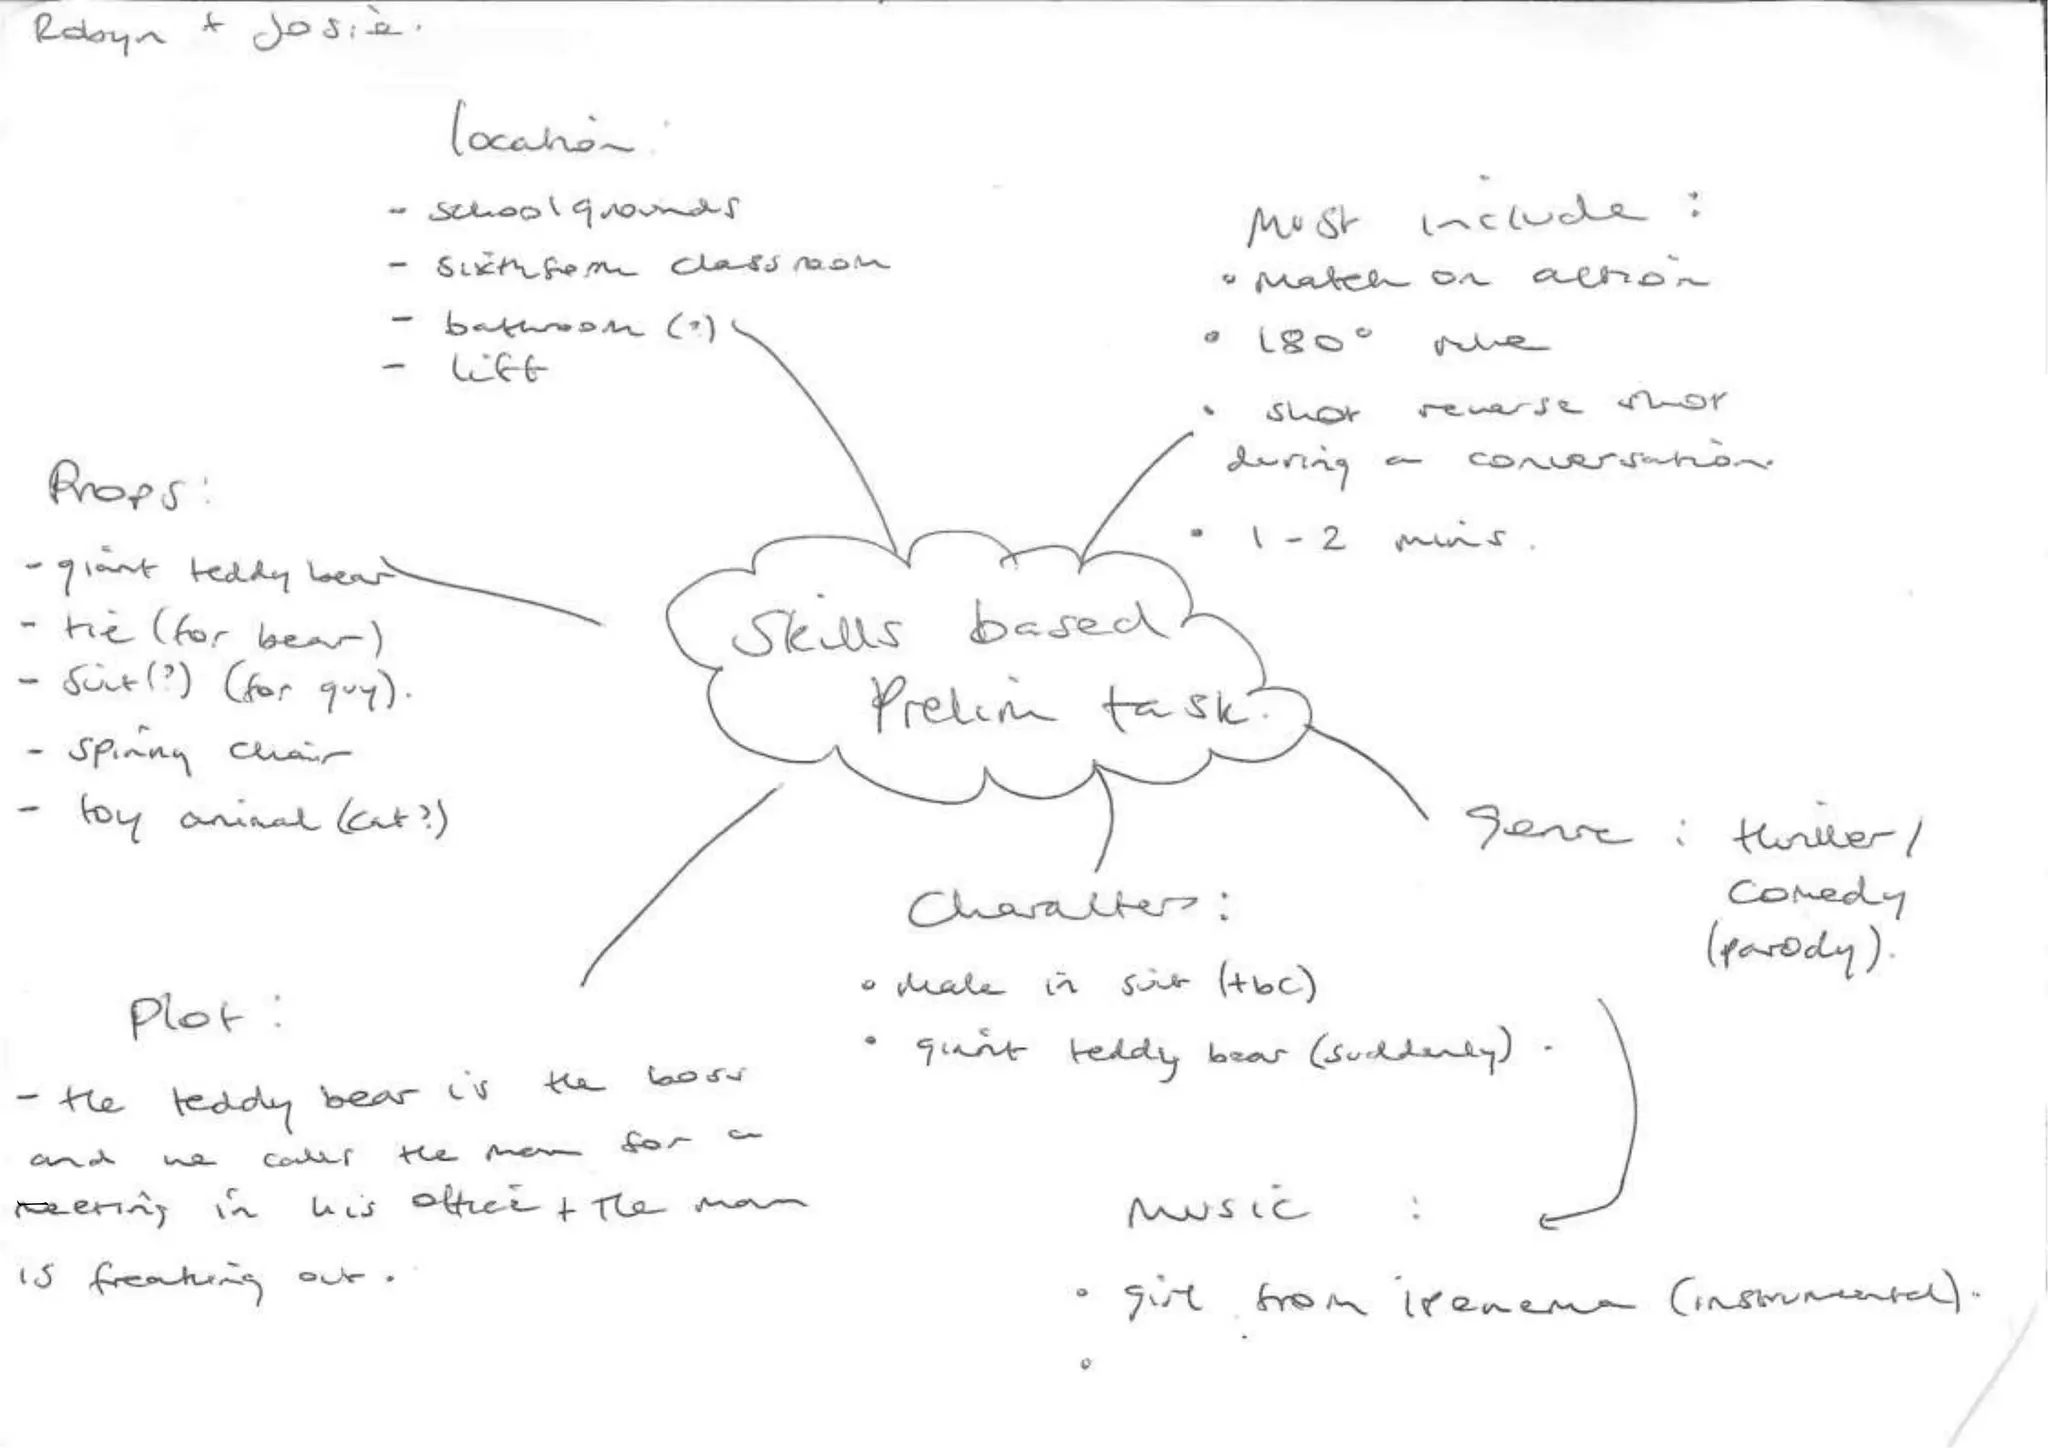 Robyn + Josie.
Location :
- school grounds
- sixth form classroom
- bathroom (?)
- lift
Must include :
• Match on action
• 180° rule
• shot reverse shot
during a conversation.
• 1 - 2 mins.
Props :
- giant teddy bear
- tie (for bear)
- suit (?) (for guy).
- spinny chair
- toy animal (cat?)
Skills based
Prelim task.
Genre : thriller /
comedy
(parody).
Characters :
• Male in suit (tbc)
• giant teddy bear (suddenly).
Plot :
- the teddy bear is the boss
and we calls the man for a
meeting in his office + the man
is freaking out.
Music :
• girl from ipanema (instrumental).
•